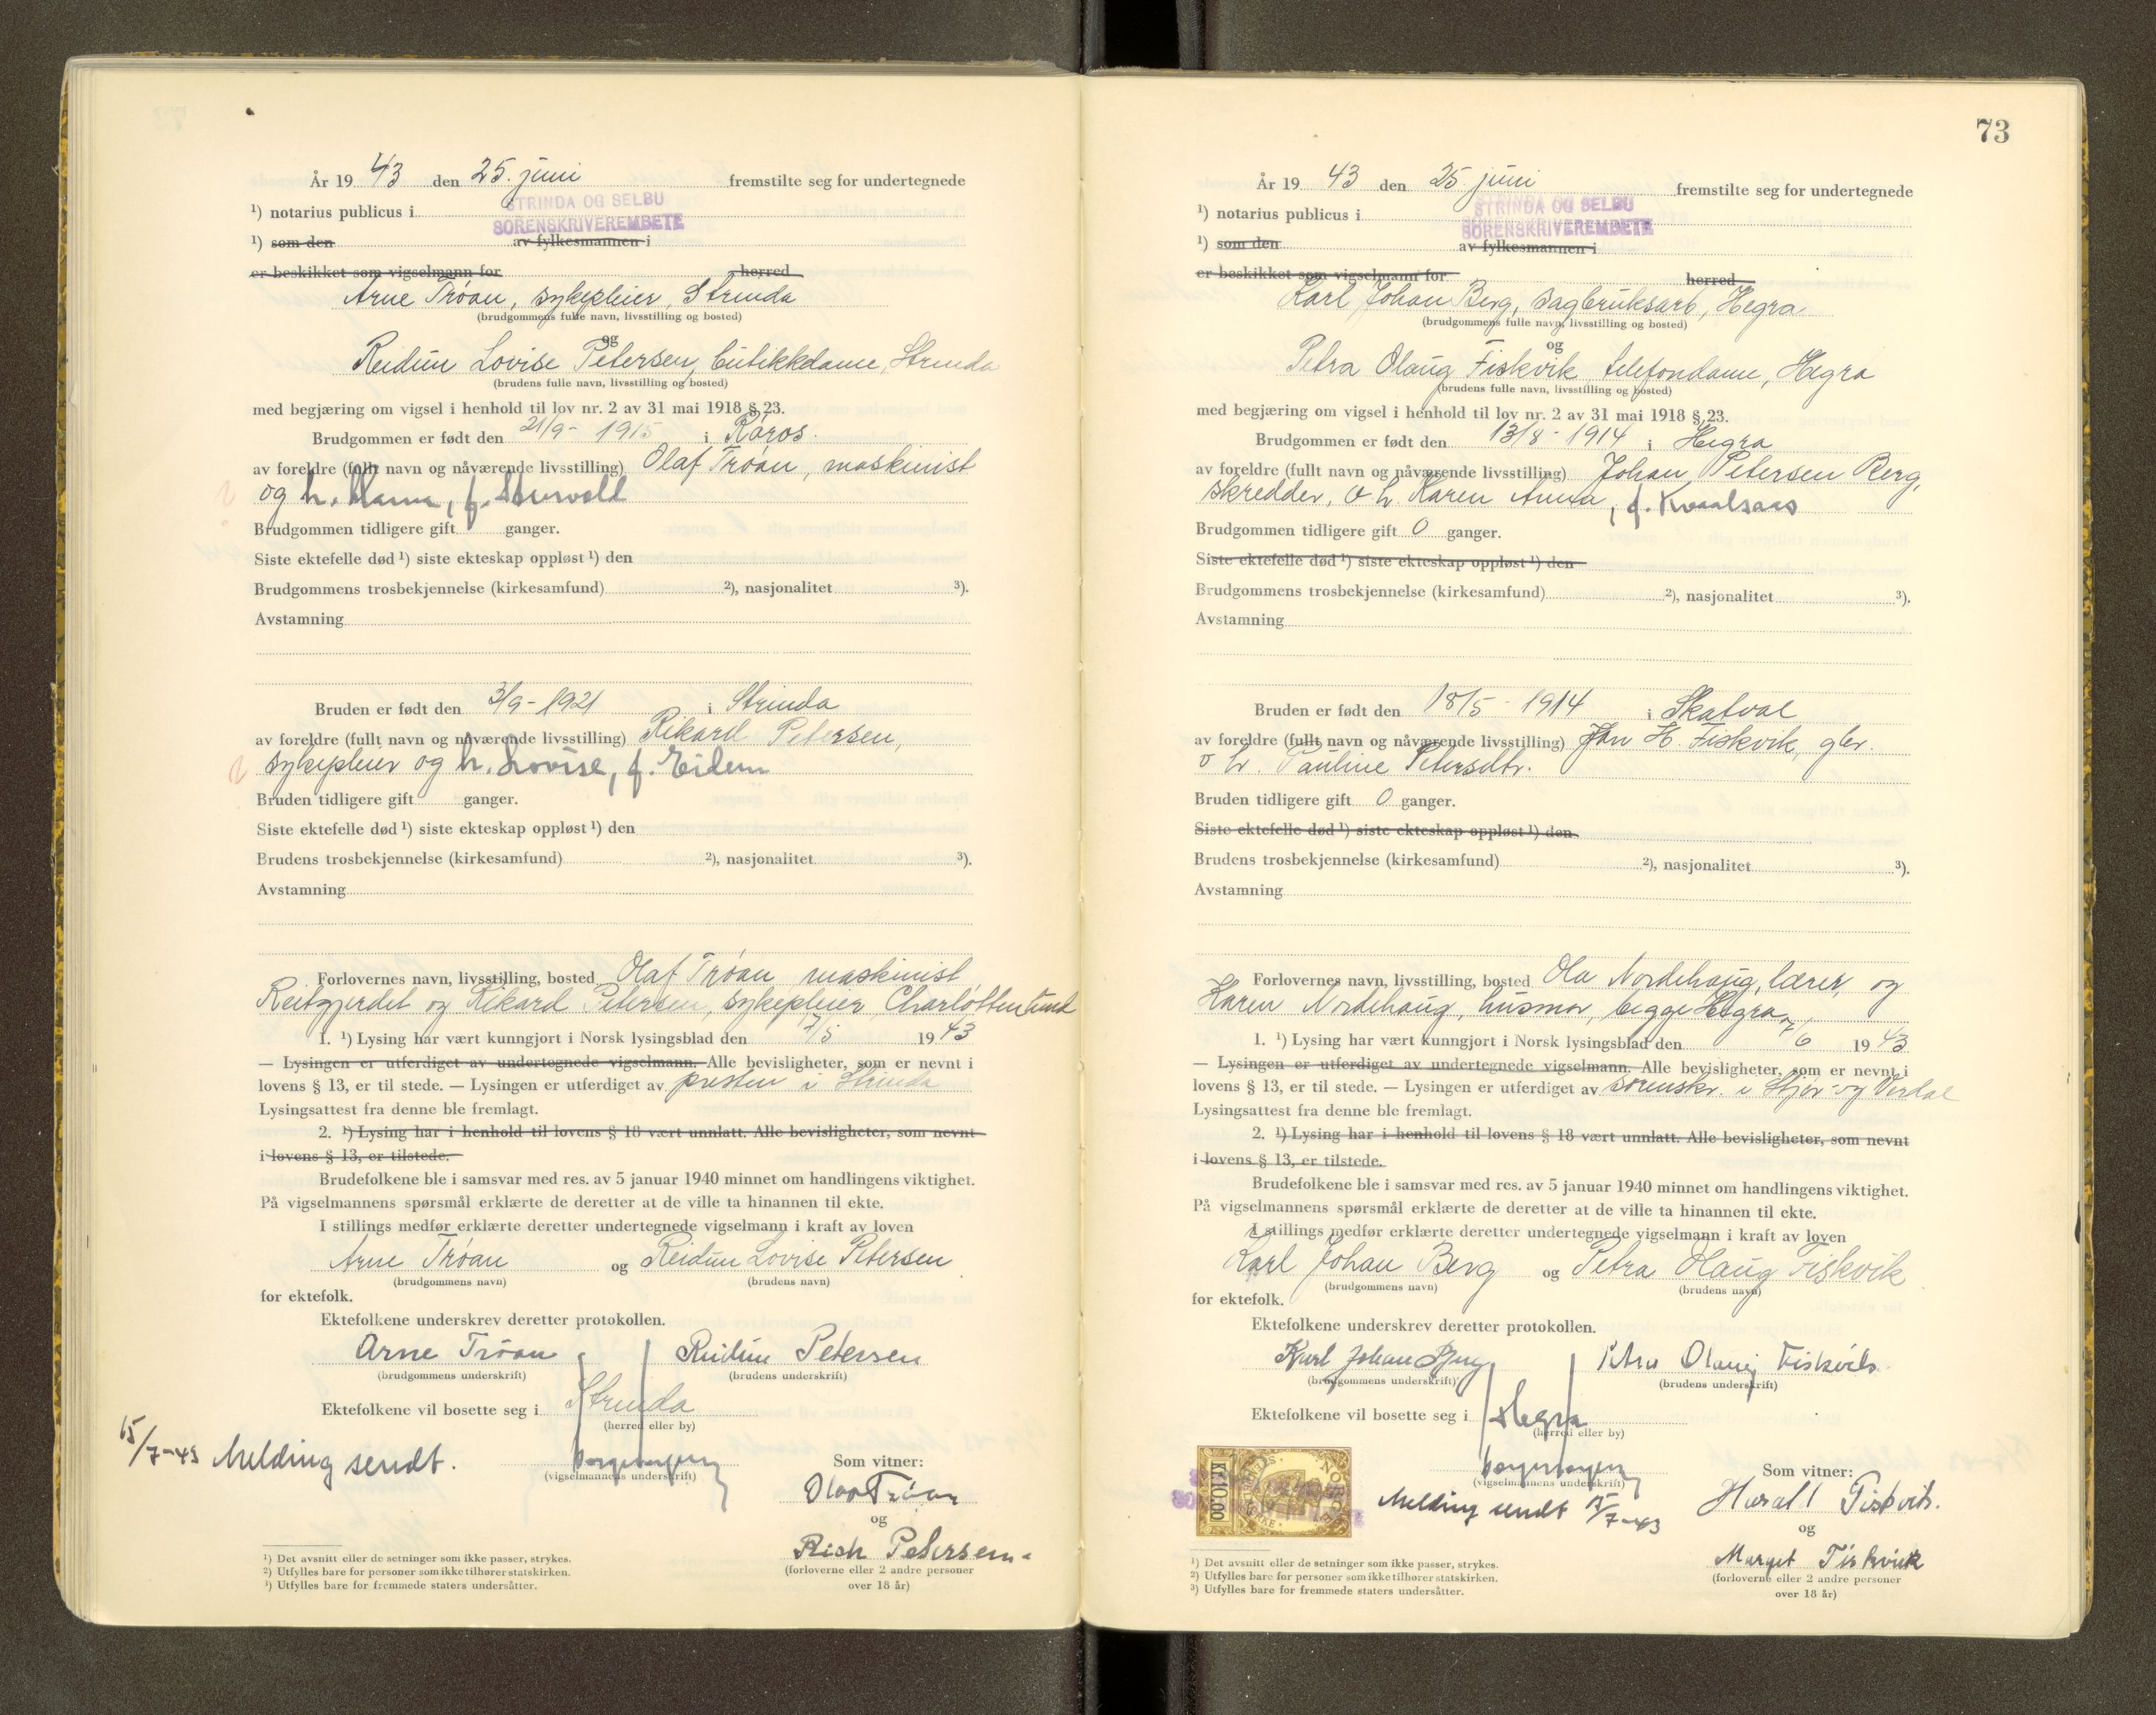 År 19 43 den 25. juni fremstilte seg for undertegnede
¹) notarius publicus i STRINDA OG SELBU
SORENSKRIVEREMBETE
¹) som den av fylkesmannen i
er beskikket som vigselmann for herred
Arne Trøan, sykepleier, Strinda
(brudgommens fulle navn, livsstilling og bosted)
og
Reidun Lovise Petersen, butikkdame, Strinda
(brudens fulle navn, livsstilling og bosted)
med begjæring om vigsel i henhold til lov nr. 2 av 31 mai 1918 § 23.
Brudgommen er født den 21/9 - 1915 i Røros.
av foreldre (fullt navn og nåværende livsstilling) Olaf Trøan, maskinist
og h. f.
Brudgommen tidligere gift ganger.
Siste ektefelle død ¹) siste ekteskap oppløst ¹) den
Brudgommens trosbekjennelse (kirkesamfund) ²), nasjonalitet ³).
Avstamning
Bruden er født den 3/9 - 1921 i Strinda
av foreldre (fullt navn og nåværende livsstilling) Rikard Petersen,
sykepleier og h. Lovise, f. Eidem
Bruden tidligere gift ganger.
Siste ektefelle død ¹) siste ekteskap oppløst ¹) den
Brudens trosbekjennelse (kirkesamfund) ²), nasjonalitet ³).
Avstamning
Forlovernes navn, livsstilling, bosted Olaf Trøan, maskinist
Reitgjerdet og Rikard Petersen, sykepleier, Charlottenlund
1. ¹) Lysing har vært kunngjort i Norsk lysingsblad den 7/5 1943
— Lysingen er utferdiget av undertegnede vigselmann. Alle bevisligheter, som er nevnt i
lovens § 13, er til stede. — Lysingen er utferdiget av presten i Strinda
Lysingsattest fra denne ble fremlagt.
2. ¹) Lysing har i henhold til lovens § 18 vært unnlatt. Alle bevisligheter, som nevnt
i lovens § 13, er tilstede.
Brudefolkene ble i samsvar med res. av 5 januar 1940 minnet om handlingens viktighet.
På vigselmannens spørsmål erklærte de deretter at de ville ta hinannen til ekte.
I stillings medfør erklærte deretter undertegnede vigselmann i kraft av loven
Arne Trøan og Reidun Lovise Petersen
(brudgommens navn) (brudens navn)
for ektefolk.
Ektefolkene underskrev deretter protokollen.
Arne Trøan Reidun Petersen
(brudgommens underskrift) (brudens underskrift)
Ektefolkene vil bosette seg i Strinda
(herred eller by)
15/7-43 Melding sendt.
(vigselmannens underskrift)
Som vitner:
Olav Trøan
og
Rich Petersen
(forloverne eller 2 andre personer
over 18 år)
¹) Det avsnitt eller de setninger som ikke passer, strykes.
²) Utfylles bare for personer som ikke tilhører statskirken.
³) Utfylles bare for fremmede staters undersåtter.
73
År 19 43 den 25 juni fremstilte seg for undertegnede
¹) notarius publicus i STRINDA OG SELBU
SORENSKRIVEREMBETE
¹) som den av fylkesmannen i
er beskikket som vigselmann for herred
Karl Johan Berg, sagbruksarb, Hegra
(brudgommens fulle navn, livsstilling og bosted)
og
Petra Olaug Fiskvik telefondame, Hegra
(brudens fulle navn, livsstilling og bosted)
med begjæring om vigsel i henhold til lov nr. 2 av 31 mai 1918 § 23.
Brudgommen er født den 13/8 - 1914 i Hegra
av foreldre (fullt navn og nåværende livsstilling) Johan Petersen Berg,
skredder, o. h. Karen Anna, f. Kvaalsaas
Brudgommen tidligere gift 0 ganger.
Siste ektefelle død ¹) siste ekteskap oppløst ¹) den
Brudgommens trosbekjennelse (kirkesamfund) ²), nasjonalitet ³).
Avstamning
Bruden er født den 18/5 - 1914 i Skatval
av foreldre (fullt navn og nåværende livsstilling) Jon H. Fiskvik, gbr.
o h. Pauline Petersdtr.
Bruden tidligere gift 0 ganger.
Siste ektefelle død ¹) siste ekteskap oppløst ¹) den
Brudens trosbekjennelse (kirkesamfund) ²), nasjonalitet ³).
Avstamning
Forlovernes navn, livsstilling, bosted Ola Nordehaug, lærer, og
Karen Nordehaug, husmor, begge Hegra
1. ¹) Lysing har vært kunngjort i Norsk lysingsblad den 2/6 1943
— Lysingen er utferdiget av undertegnede vigselmann. Alle bevisligheter, som er nevnt i
lovens § 13, er til stede. — Lysingen er utferdiget av sorenskr. i Stjør- og Verdal
Lysingsattest fra denne ble fremlagt.
2. ¹) Lysing har i henhold til lovens § 18 vært unnlatt. Alle bevisligheter, som nevnt
i lovens § 13, er tilstede.
Brudefolkene ble i samsvar med res. av 5 januar 1940 minnet om handlingens viktighet.
På vigselmannens spørsmål erklærte de deretter at de ville ta hinannen til ekte.
I stillings medfør erklærte deretter undertegnede vigselmann i kraft av loven
Karl Johan Berg og Petra Olaug Fiskvik
(brudgommens navn) (brudens navn)
for ektefolk.
Ektefolkene underskrev deretter protokollen.
Karl Johan Berg Petra Olaug Fiskvik
(brudgommens underskrift) (brudens underskrift)
Ektefolkene vil bosette seg i Hegra
(herred eller by)
(vigselmannens underskrift)
KR. 10.00
NORGE
Melding sendt 15/7-43
Som vitner:
Harall Fiskvik.
og
Margit Fiskvik
(forloverne eller 2 andre personer
over 18 år)
¹) Det avsnitt eller de setninger som ikke passer, strykes.
²) Utfylles bare for personer som ikke tilhører statskirken.
³) Utfylles bare for fremmede staters undersåtter.